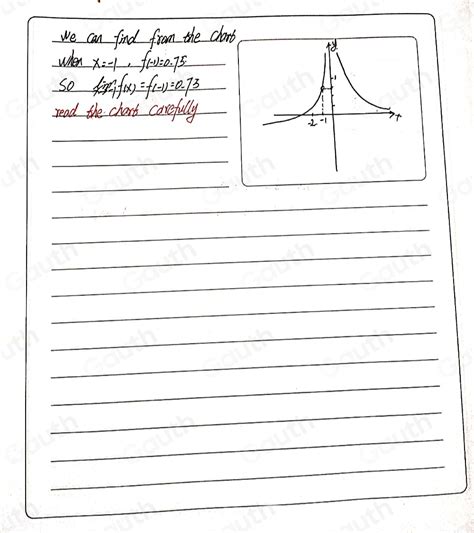 we can find from the chart
when x=-1 , f(-1)=0.75
So lim f(x) = f(-1) = 0.73
read the chart carefully
y
1
-2 -1
x
Gauth